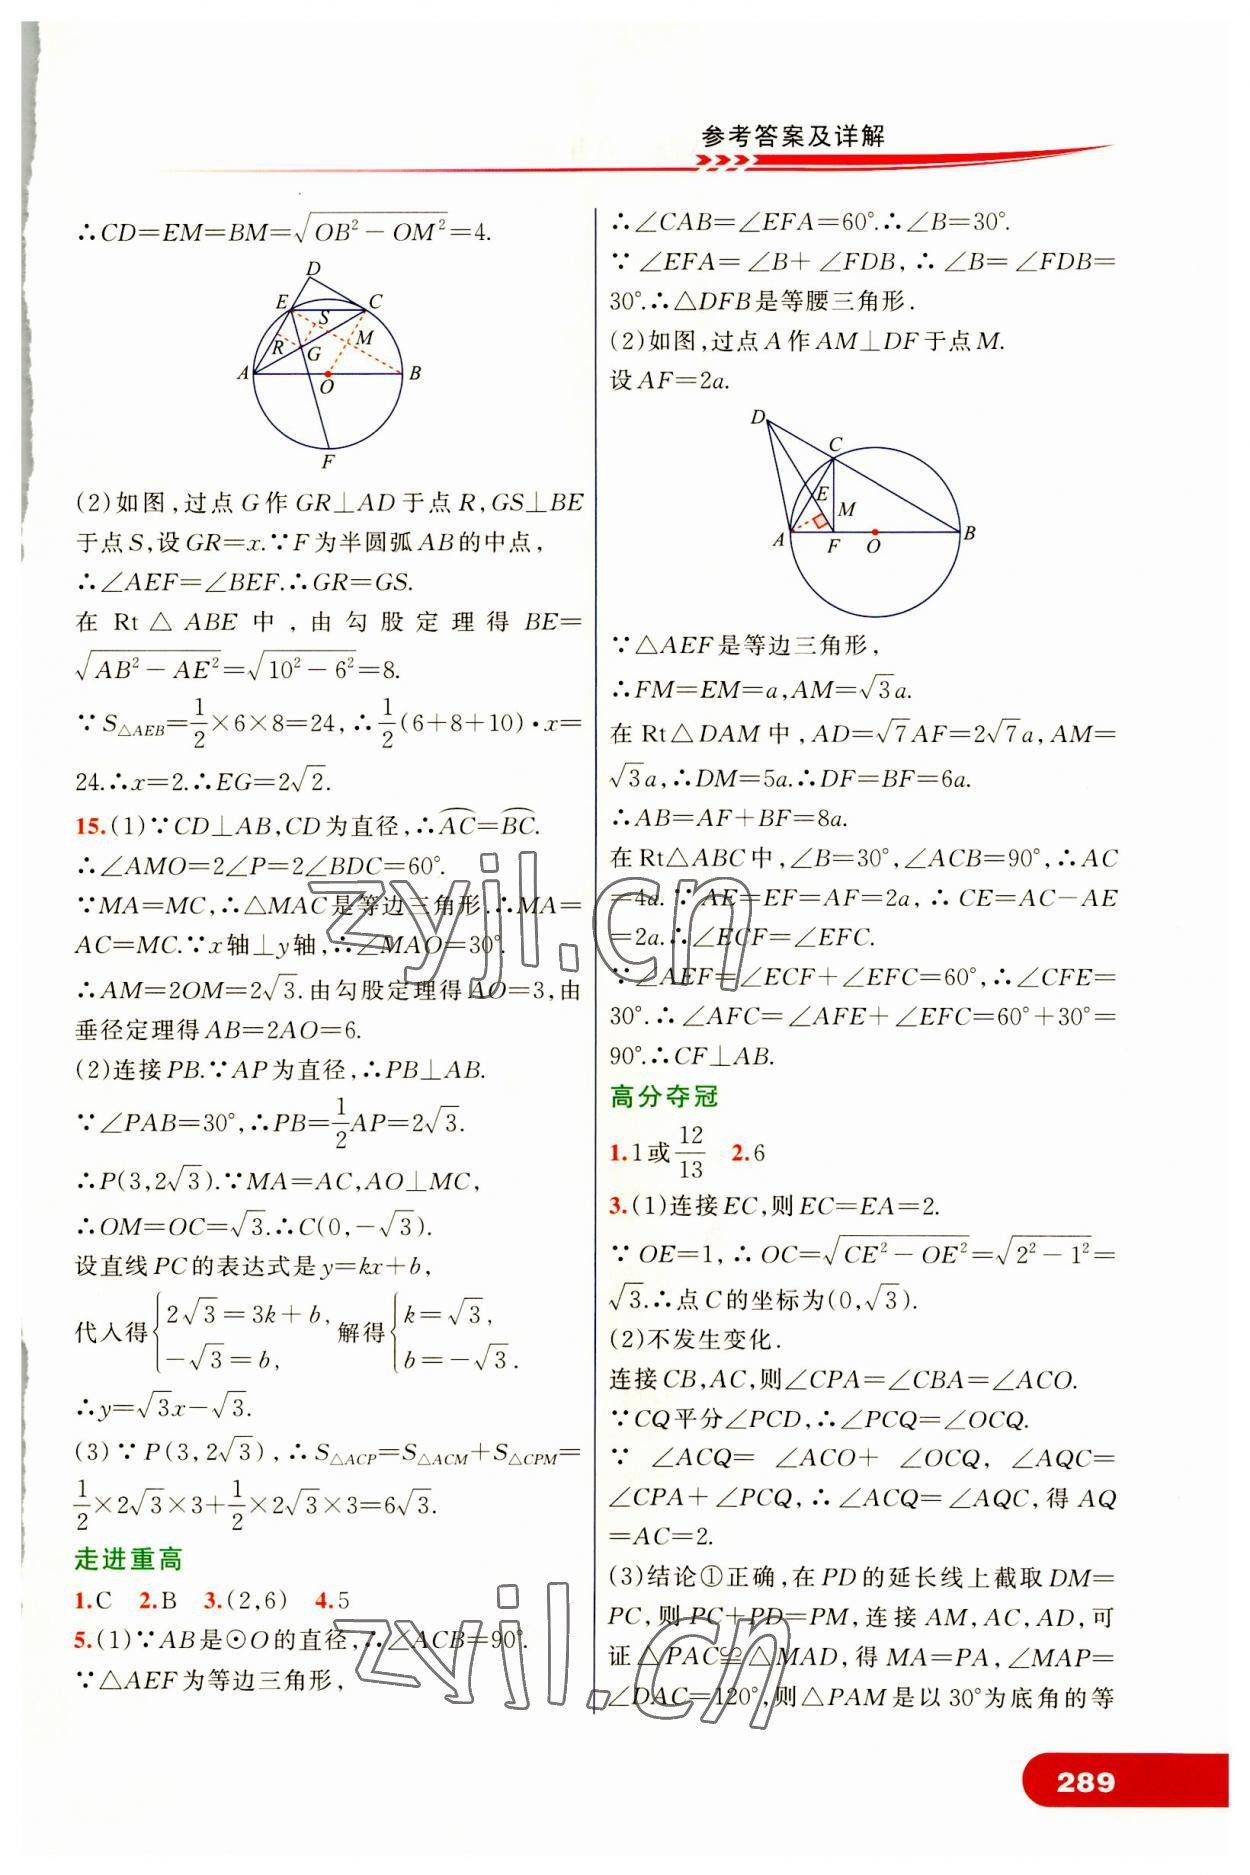 参考答案及详解
∴CD=EM=BM=√(OB²−OM²)=4.
D
E
C
S
M
R
G
A
O
B
F
(2)如图,过点G作GR⊥AD于点R,GS⊥BE
于点S,设GR=x.∵F为半圆弧AB的中点,
∴∠AEF=∠BEF.∴GR=GS.
在Rt△ABE中,由勾股定理得BE=
√(AB²−AE²)=√(10²−6²)=8.
∵S△AEB=1/2×6×8=24,∴1/2(6+8+10)·x=
24.∴x=2.∴EG=2√2.
15.(1)∵CD⊥AB,CD为直径,∴⌒AC=⌒BC.
∴∠AMO=2∠P=2∠BDC=60°.
∵MA=MC,∴△MAC是等边三角形.∴MA=
AC=MC.∵x轴⊥y轴,∴∠MAO=30°.
∴AM=2OM=2√3.由勾股定理得AO=3,由
垂径定理得AB=2AO=6.
(2)连接PB.∵AP为直径,∴PB⊥AB.
∵∠PAB=30°,∴PB=1/2AP=2√3.
∴P(3,2√3).∵MA=AC,AO⊥MC,
∴OM=OC=√3.∴C(0,−√3).
设直线PC的表达式是y=kx+b,
代入得{2√3=3k+b, −√3=b, 解得{k=√3, b=−√3.
∴y=√3x−√3.
(3)∵P(3,2√3),∴S△ACP=S△ACM+S△CPM=
1/2×2√3×3+1/2×2√3×3=6√3.
走进重高
1.C 2.B 3.(2,6) 4.5
5.(1)∵AB是⊙O的直径,∴∠ACB=90°.
∵△AEF为等边三角形,
∴∠CAB=∠EFA=60°.∴∠B=30°.
∵∠EFA=∠B+∠FDB,∴∠B=∠FDB=
30°.∴△DFB是等腰三角形.
(2)如图,过点A作AM⊥DF于点M.
设AF=2a.
D
C
E
M
A
F
O
B
∵△AEF是等边三角形,
∴FM=EM=a,AM=√3a.
在Rt△DAM中,AD=√7AF=2√7a,AM=
√3a,∴DM=5a.∴DF=BF=6a.
∴AB=AF+BF=8a.
在Rt△ABC中,∠B=30°,∠ACB=90°,∴AC
=4a.∵AE=EF=AF=2a,∴CE=AC−AE
=2a.∴∠ECF=∠EFC.
∵∠AEF=∠ECF+∠EFC=60°,∴∠CFE=
30°.∴∠AFC=∠AFE+∠EFC=60°+30°=
90°.∴CF⊥AB.
高分夺冠
1.1或12/13 2.6
3.(1)连接EC,则EC=EA=2.
∵OE=1,∴OC=√(CE²−OE²)=√(2²−1²)=
√3.∴点C的坐标为(0,√3).
(2)不发生变化.
连接CB,AC,则∠CPA=∠CBA=∠ACO.
∵CQ平分∠PCD,∴∠PCQ=∠OCQ.
∵∠ACQ=∠ACO+∠OCQ,∠AQC=
∠CPA+∠PCQ,∴∠ACQ=∠AQC,得AQ
=AC=2.
(3)结论①正确,在PD的延长线上截取DM=
PC,则PC+PD=PM,连接AM,AC,AD,可
证△PAC≌△MAD,得MA=PA,∠MAP=
∠DAC=120°,则△PAM是以30°为底角的等
289
zyjl.cn
zyjl.cn